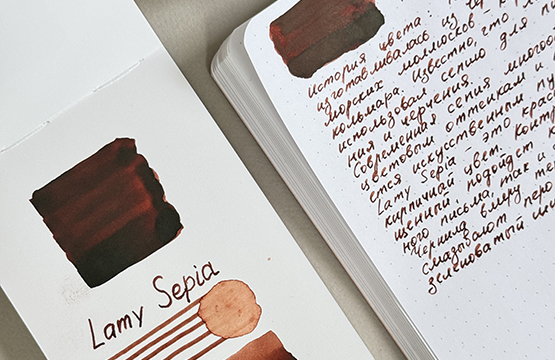 Lamy Sepia
История цвета:
изготавливалась из
морских моллюсков-
кальмара. Известно, что
использовал сепию для
ния и черчения.
Современная сепия многоо
цветовым оттенкам и
ется искусственным
Lamy Sepia - это
кирпичный цвет.
ценный, подойдет
ного письма, так и
Чернила в меру
смазывают перо
зеленоватый